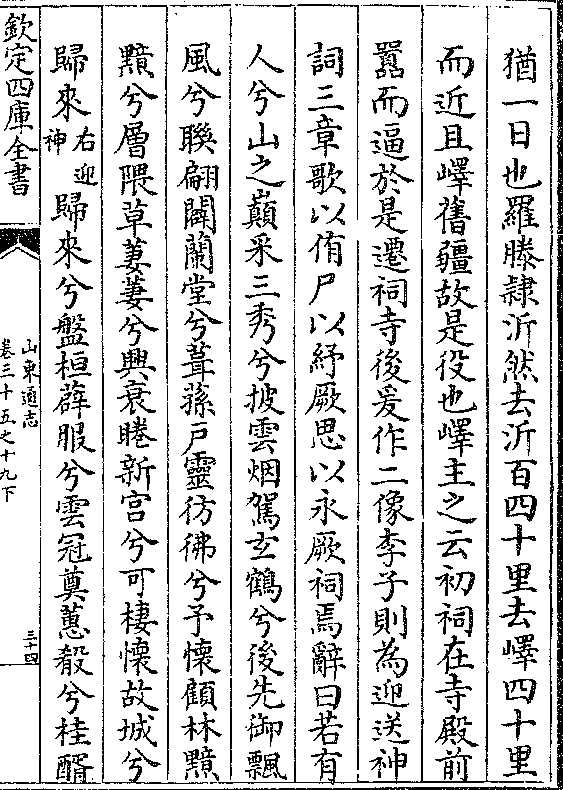 猶一日也羅滕隷沂然去沂百四十里去嶧四十里
而近且嶧舊疆故是役也嶧主之云初祠在寺殿前
囂而逼於是遷祠寺後爰作二像李子則為迎送神
詞三章歌以侑尸以紓厥思以永厥祠焉辭曰若有
人兮山之巔采三秀兮披雲烟駕玄鶴兮後先御飄
風兮聯翩闢蘭堂兮葺蓀戸靈彷彿兮予懷顧林黯
黮兮層隈草萋萋兮興衰睠新宫兮可棲懷故城兮
歸來右迎神歸來兮盤桓薜服兮雲冠奠蕙殽兮桂醑
欽定四庫全書
山東通志
卷三十五之十九下
三十四